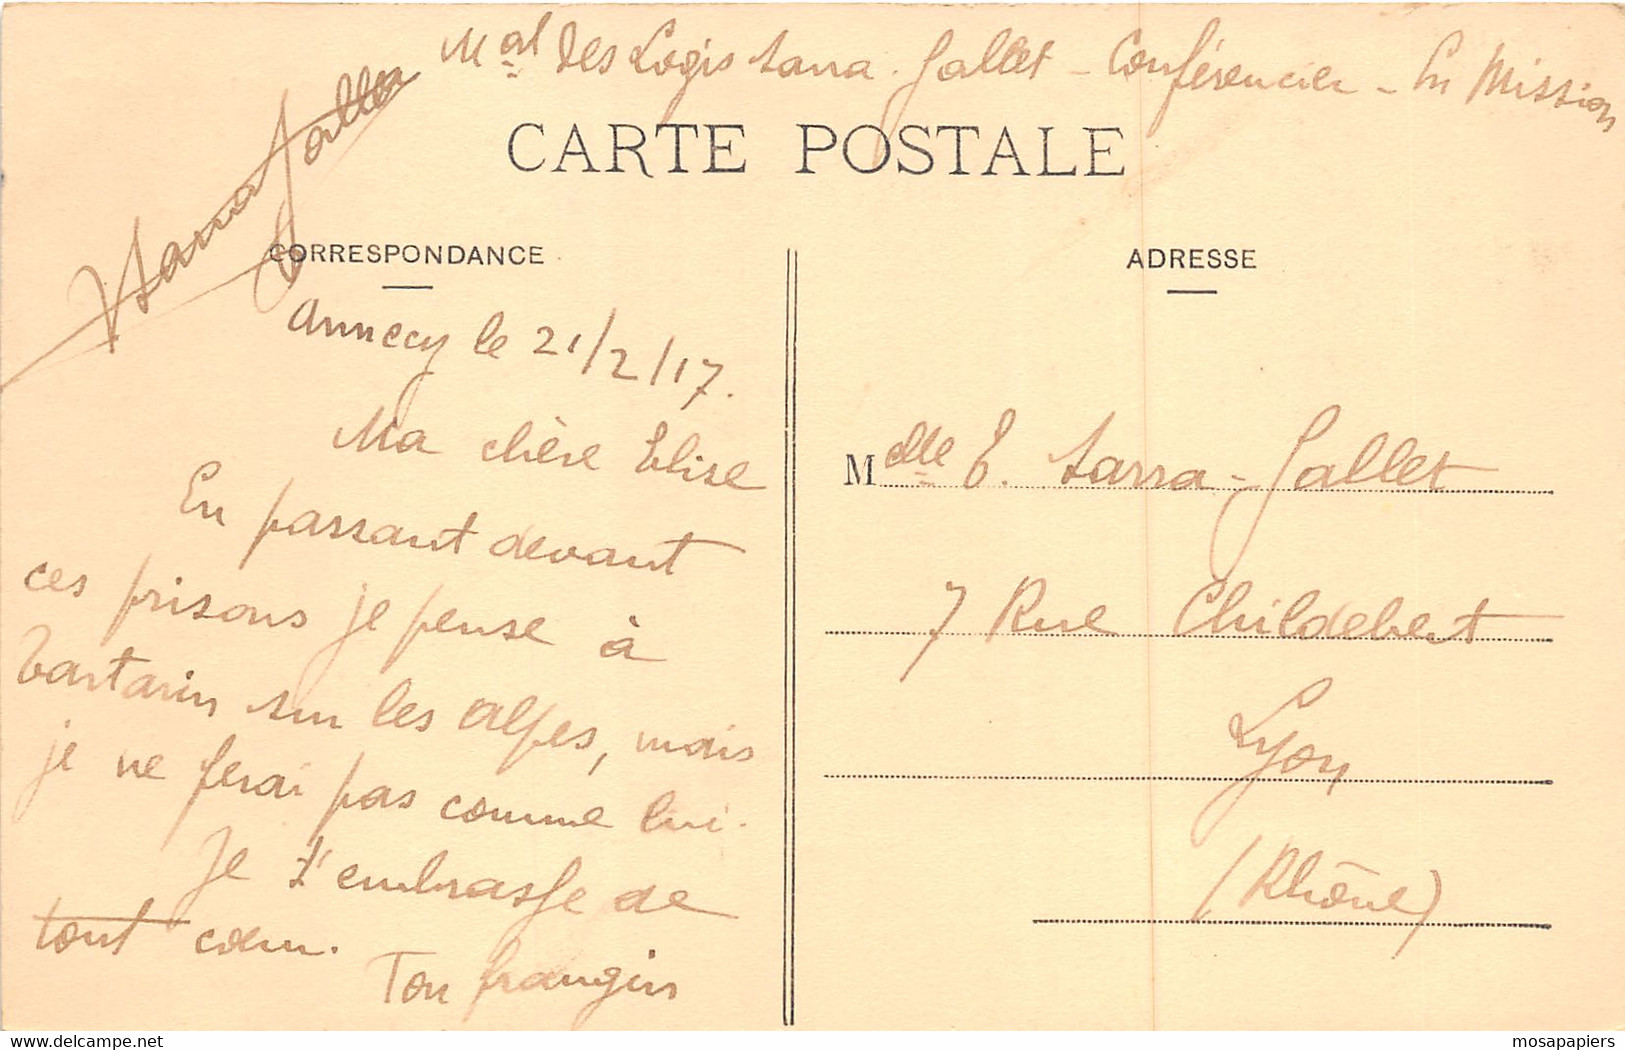 Mal des Logis Sarra-Gallet - Conférencier - En Mission
Sarra Gallet
CARTE POSTALE
CORRESPONDANCE
ADRESSE
Annecy le 21/2/17.
Ma chère Elise
En passant devant
ces prisons je pense à
Tartarin sur les alpes, mais
je ne ferai pas comme lui.
Je t'embrasse de
tout cœur.
Ton frangin
Melle E. Sarra-Gallet
7 Rue Childebert
Lyon
(Rhône)
mosapapiers